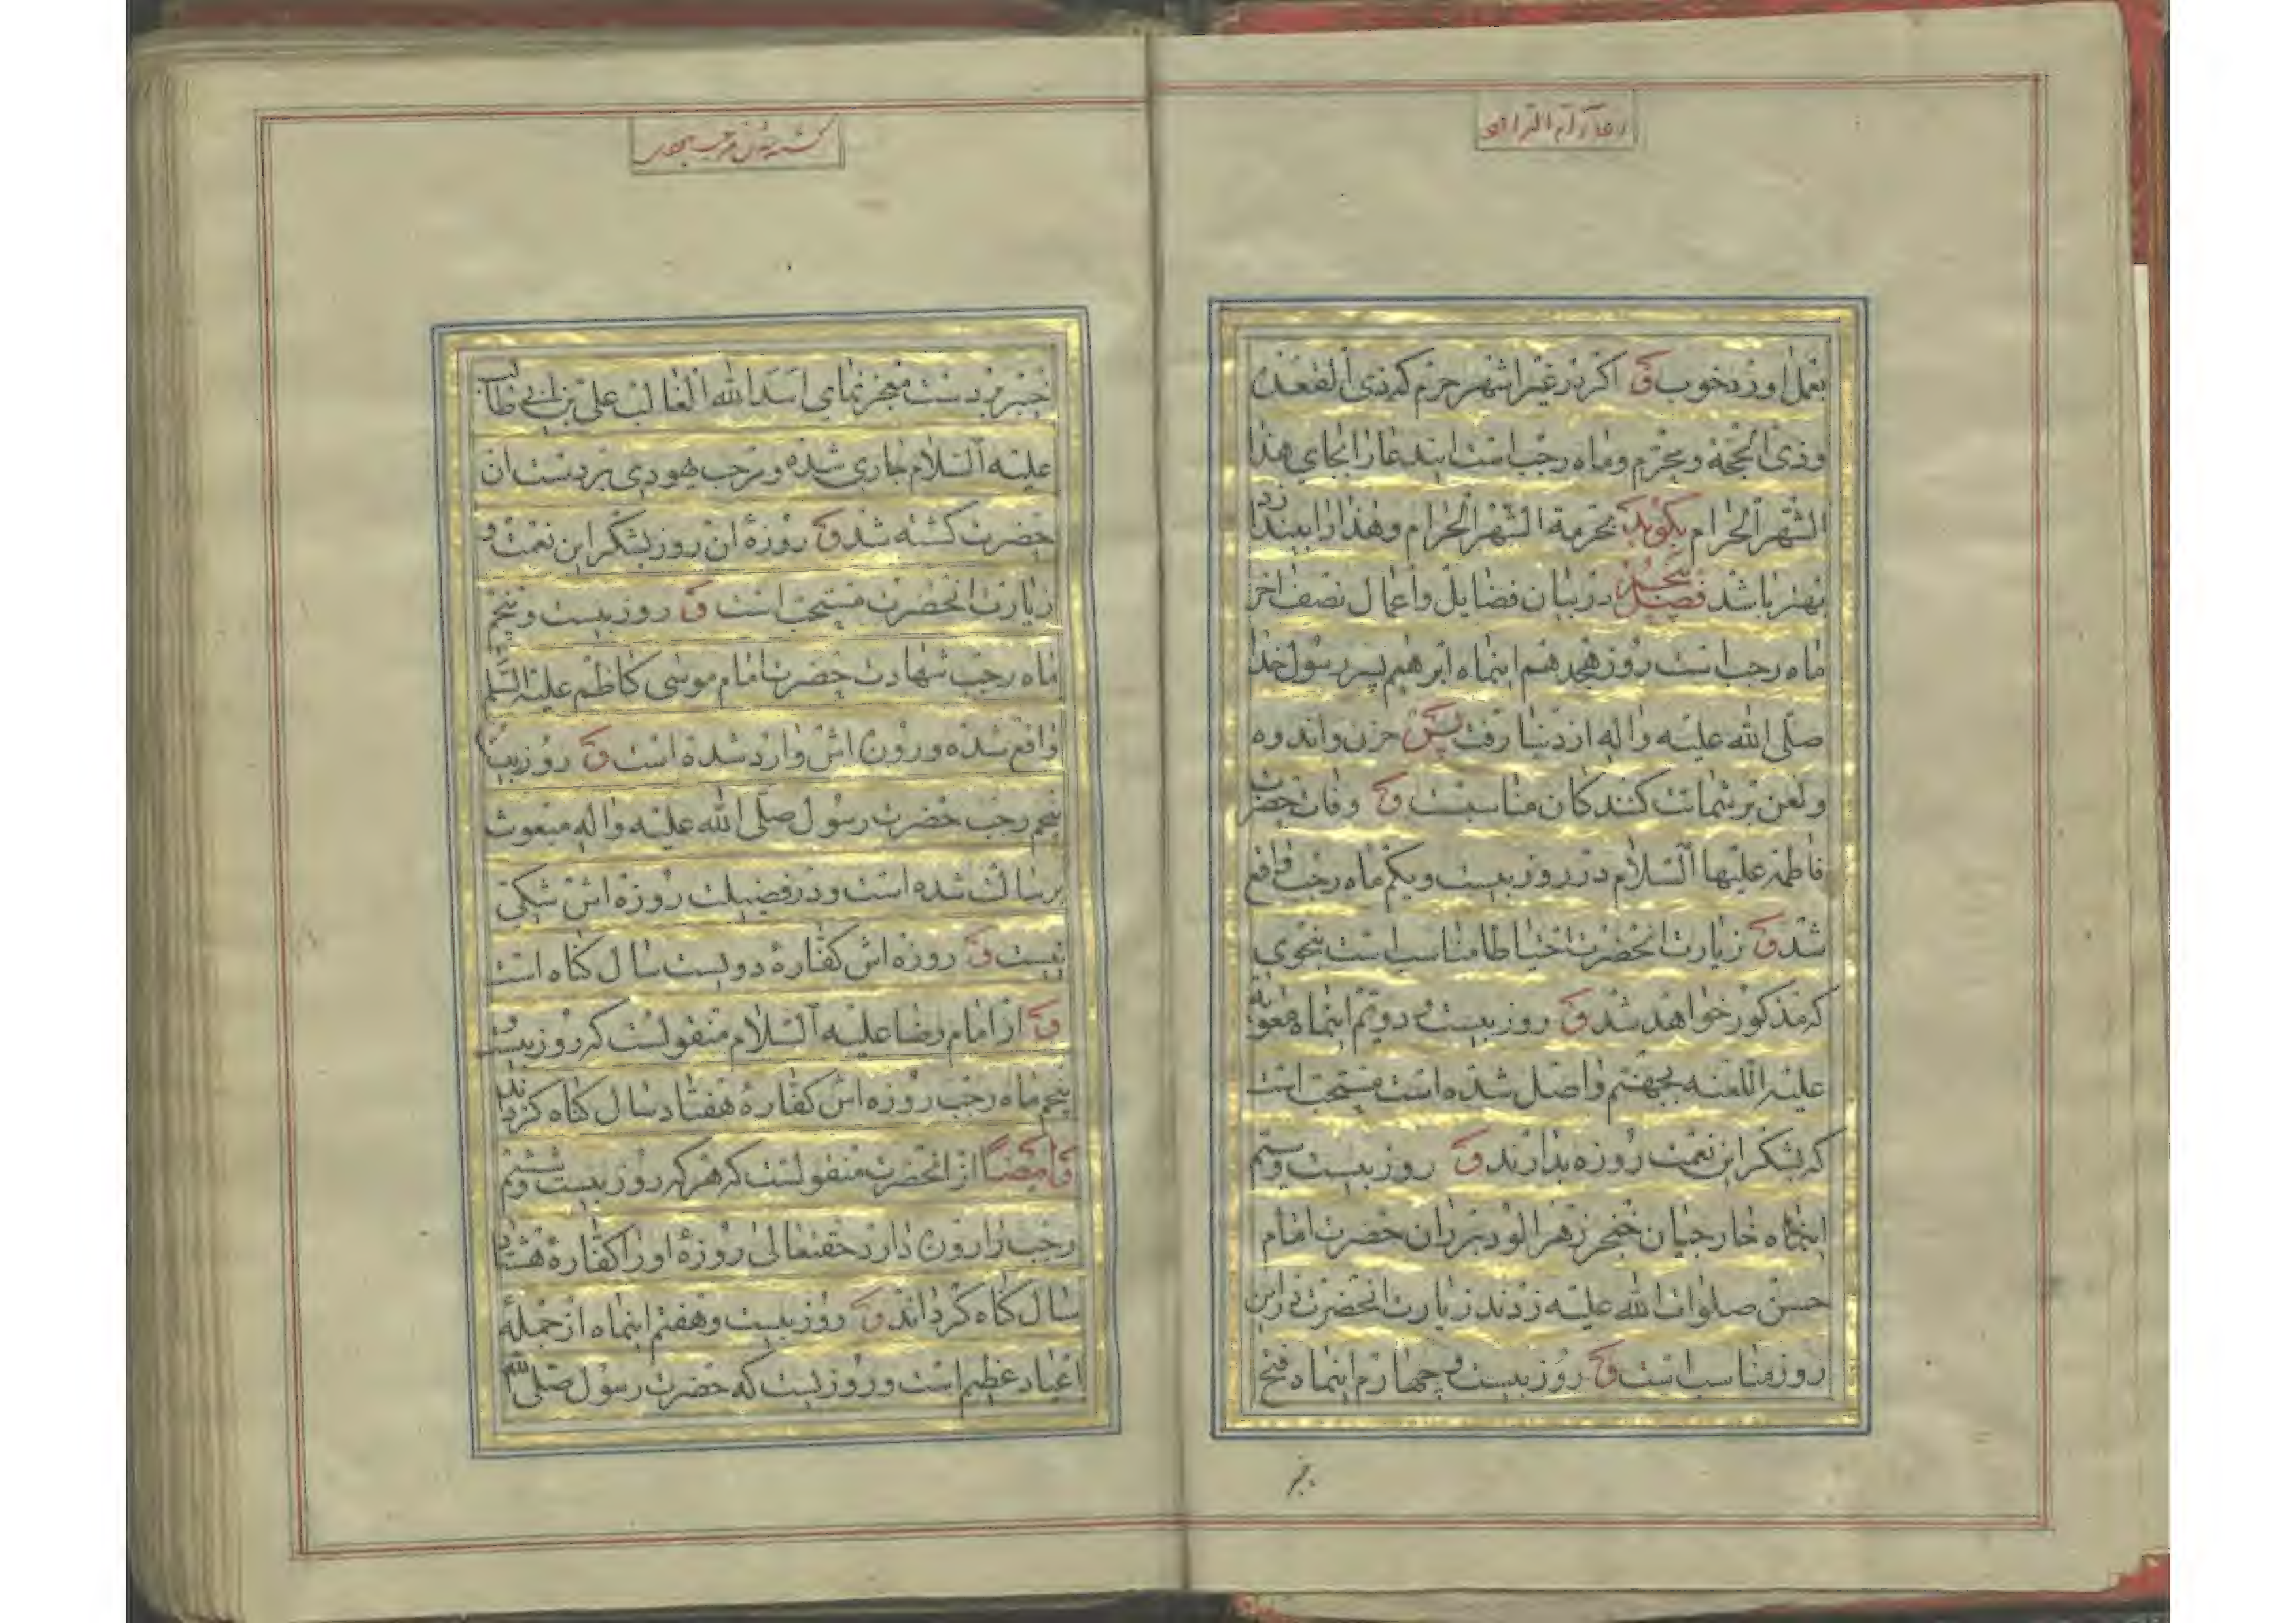 بعمل اورد خوب و اکر در غیر اشهر حرم که ذی القعده
وذی الحجة ومحرم وماه رجب است این دعا را بجای هذا
الشهر الحرام بکوید بحرمة الشهر الحرام وهذا را بیندازد
بهتر باشد فصل پنجم در بیان فضایل واعمال نصف اخر
ماه رجب است روز هجدهم اینماه ابرهیم پسر رسول خدا
صلی الله علیه واله از دنیا رفت پس حزن واندوه
ولعن بر شماتت کنندکان مناسبست و وفات حضرت
فاطمه علیها السلام در روز بیست ویکم ماه رجب واقع
شد و زیارت انحضرت احتیاطا مناسب است بنحوی
که مذکور خواهد شد و روز بیست و دویم اینماه معویة
علیه اللعنه بجهنم واصل شده است مستحب است
که بشکر این نعمت روزه بدارند و روز بیست وسیم
اینماه خارجیان خنجر زهر الود بر ران حضرت امام
حسن صلوات الله علیه زدند زیارت انحضرت در این
روز مناسب است و روز بیست و چهارم اینماه فتح
خیبر
کشته شدن مرحب
خیبر بر دست معجز نمای اسد الله الغالب علی بن ابی طالب
علیه السلام جاری شده ومرحب یهودی بر دست ان
حضرت کشته شد و روزهٔ ان روز بشکر این نعمت و
زیارت انحضرت مستحب است و روز بیست و پنجم
ماه رجب شهادت حضرت امام موسی کاظم علیه السلم
واقع شده وروزه اش وارد شده است و روز بیست
پنجم رجب حضرت رسول صلی الله علیه واله مبعوث
برسالت شده است ودر فضیلت روزه اش شکی
نیست و روزه اش کفارهٔ دویست سال کناه است
و از امام رضا علیه السلام منقولست که روز بیست و
پنجم ماه رجب روزه اش کفارهٔ هفتاد سال کناه کرداند
وایضا از انحضرت منقولست که هر که روز بیست وششم
رجب را روزه دارد حقتعالی روزهٔ او را کفارهٔ هشتاد
سال کناه کرداند و روز بیست وهفتم اینماه از جملهٔ
اعیاد عظیم است وروزیست که حضرت رسول صلی الله